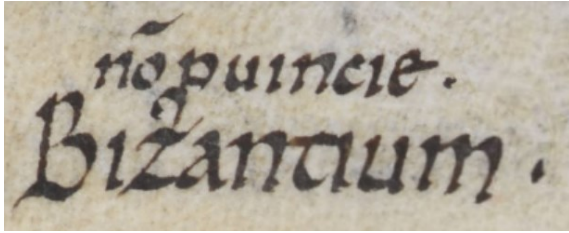 nõ puincie.
Bizantium.